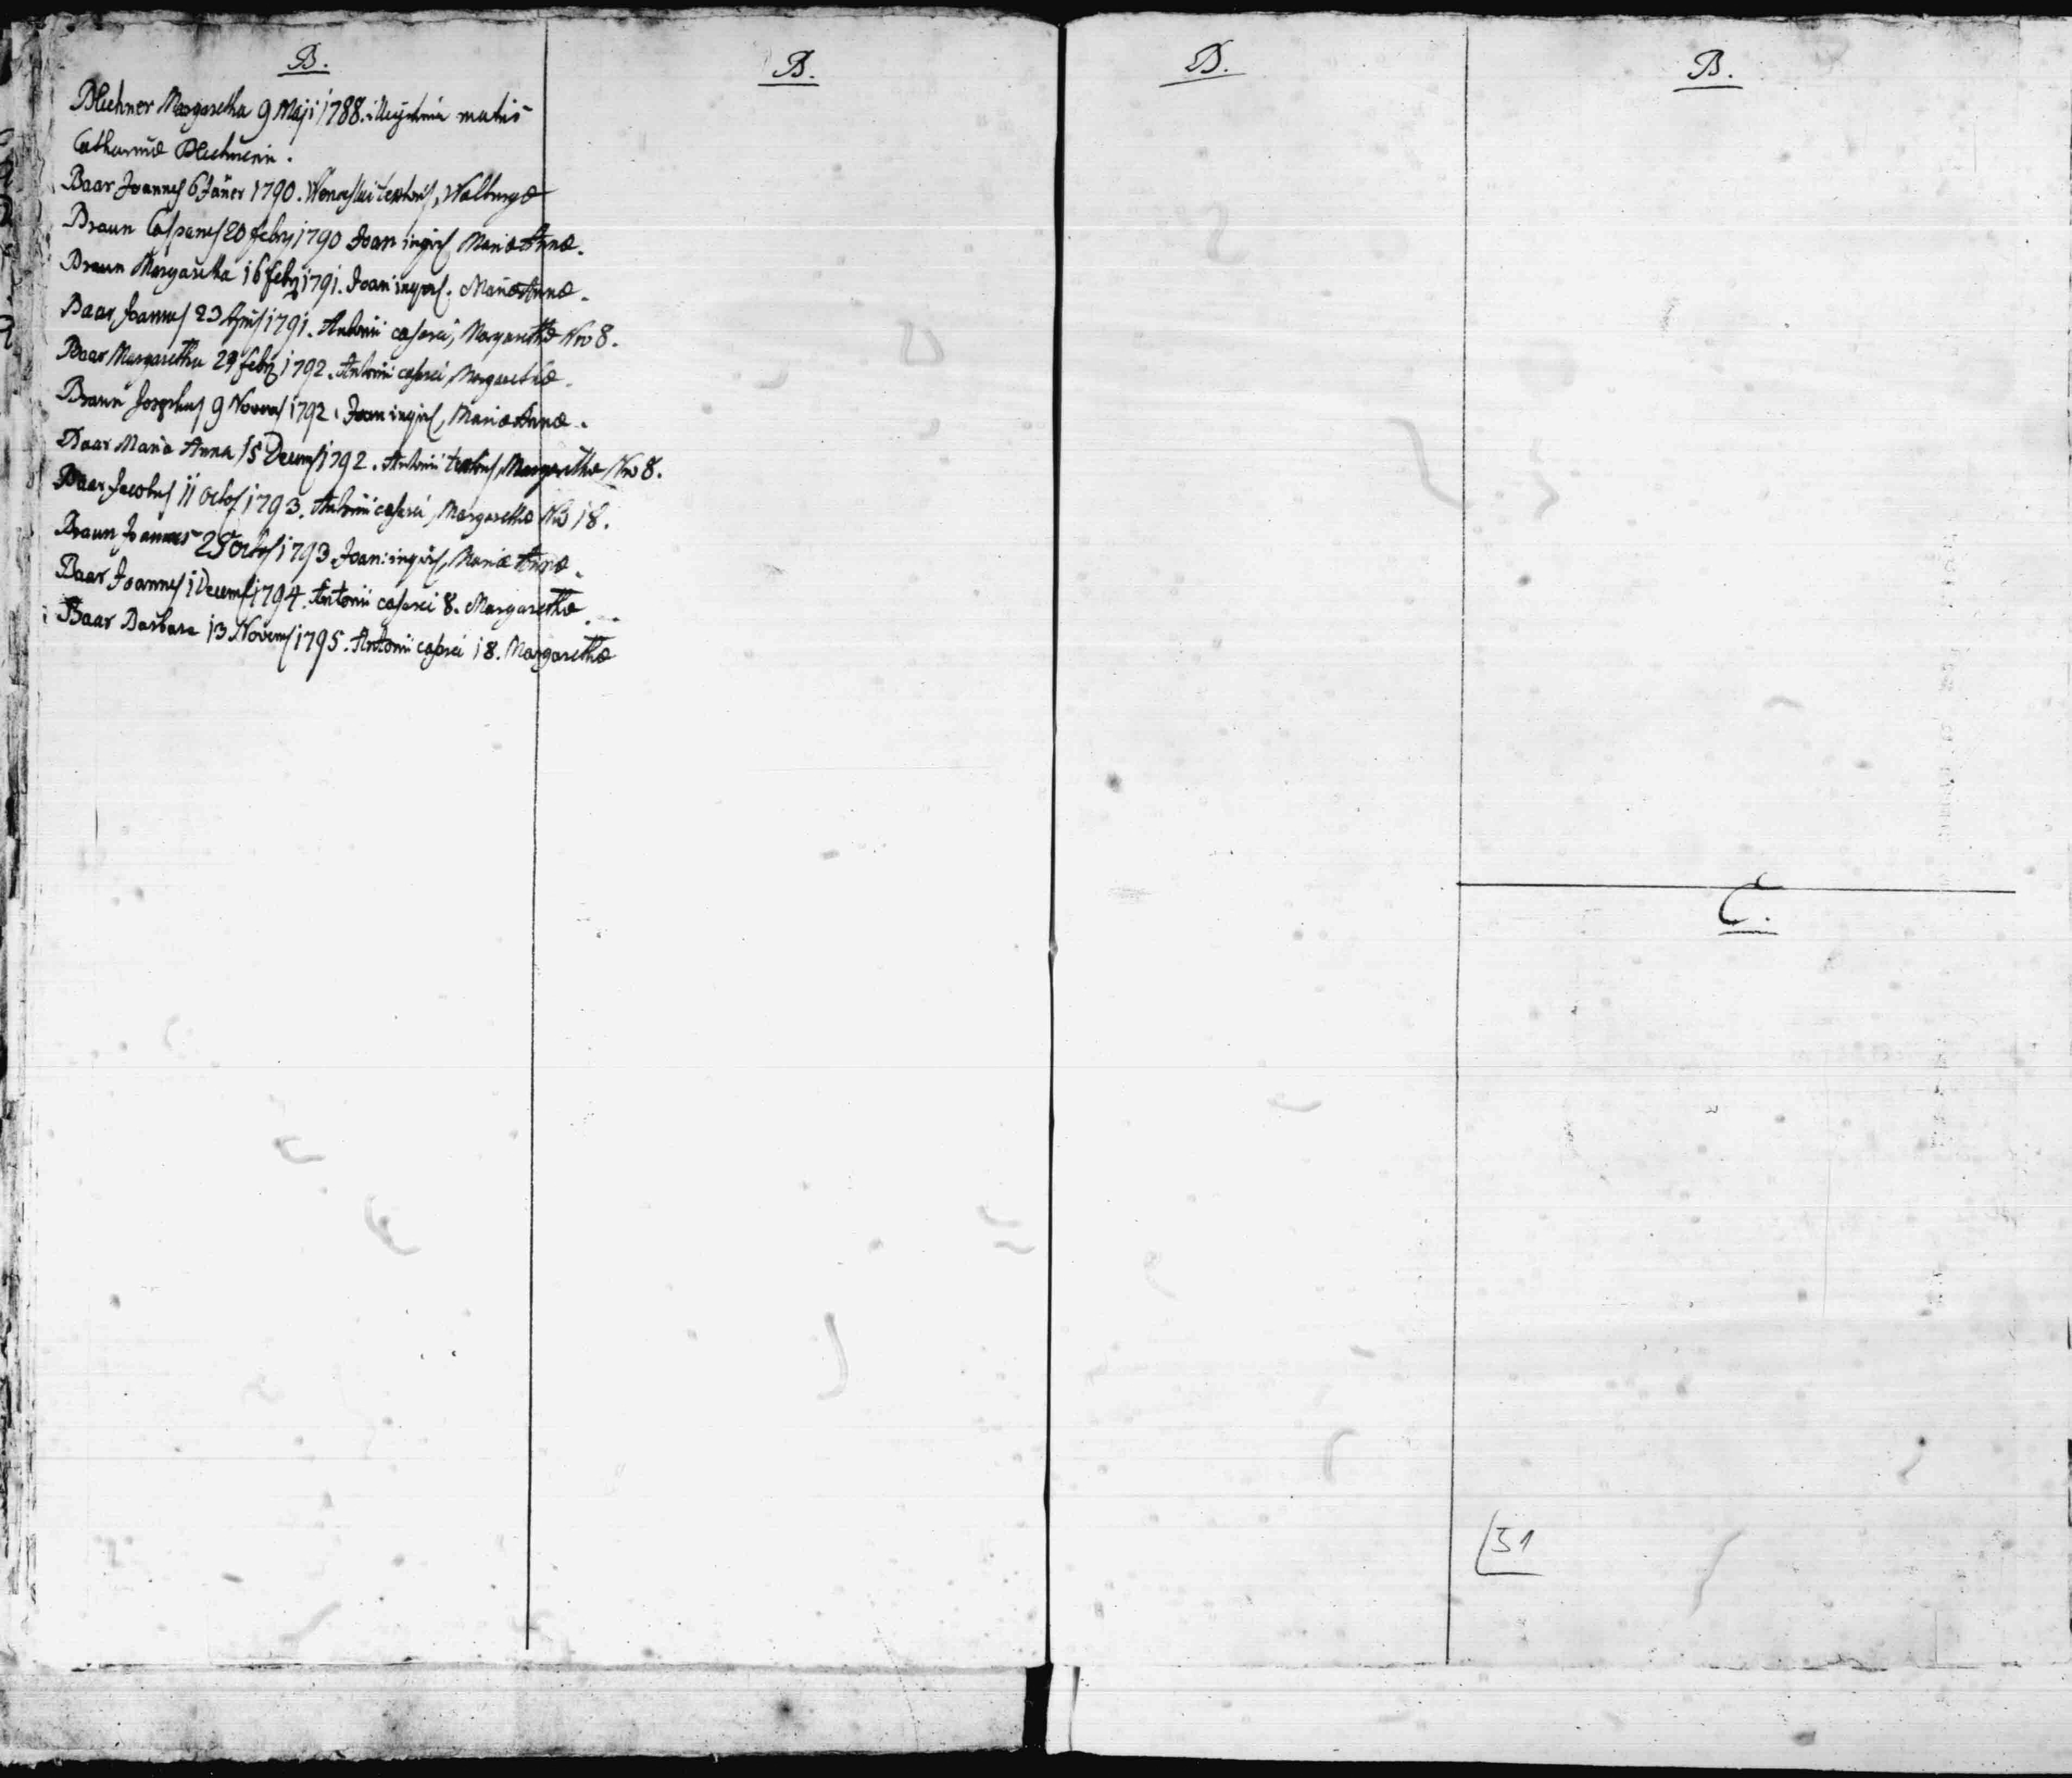 B.
Blechner Margaretha 9 Maji 1788. illegitima matris
Catharinæ Blechnerin.
Baar Joannes 6 Janer 1790. Wenceslai textoris, Walburgæ
Braun Casparus 20 febry 1790 Joan inqvil, Mariæ Annæ.
Braun Margaretha 16 febry 1791. Joan inqvil. Mariæ Annæ.
Baar Joannes 23 Aprilis 1791. Antonii casarei, Margarethæ Nro 8.
Baar Margaretha 29 febry 1792. Antonii casarei, Margarethæ.
Braun Josephus 9 Novem 1792. Joan inqvil, Mariæ Annæ.
Baar Maria Anna 15 Decem 1792. Antonii textoris, Margarethæ Nro 8.
Baar Jacobus 11 Octob 1793. Antonii casarei, Margarethæ Nro 18.
Braun Joannes 25 Octob 1793. Joan: inqvil, Mariæ Annæ.
Baar Joannes 1 Decem 1794. Antonii casarei 8. Margarethæ.
Baar Barbara 13 Novem 1795. Antonii casarei 18. Margarethæ
B.
B.
B.
C.
31